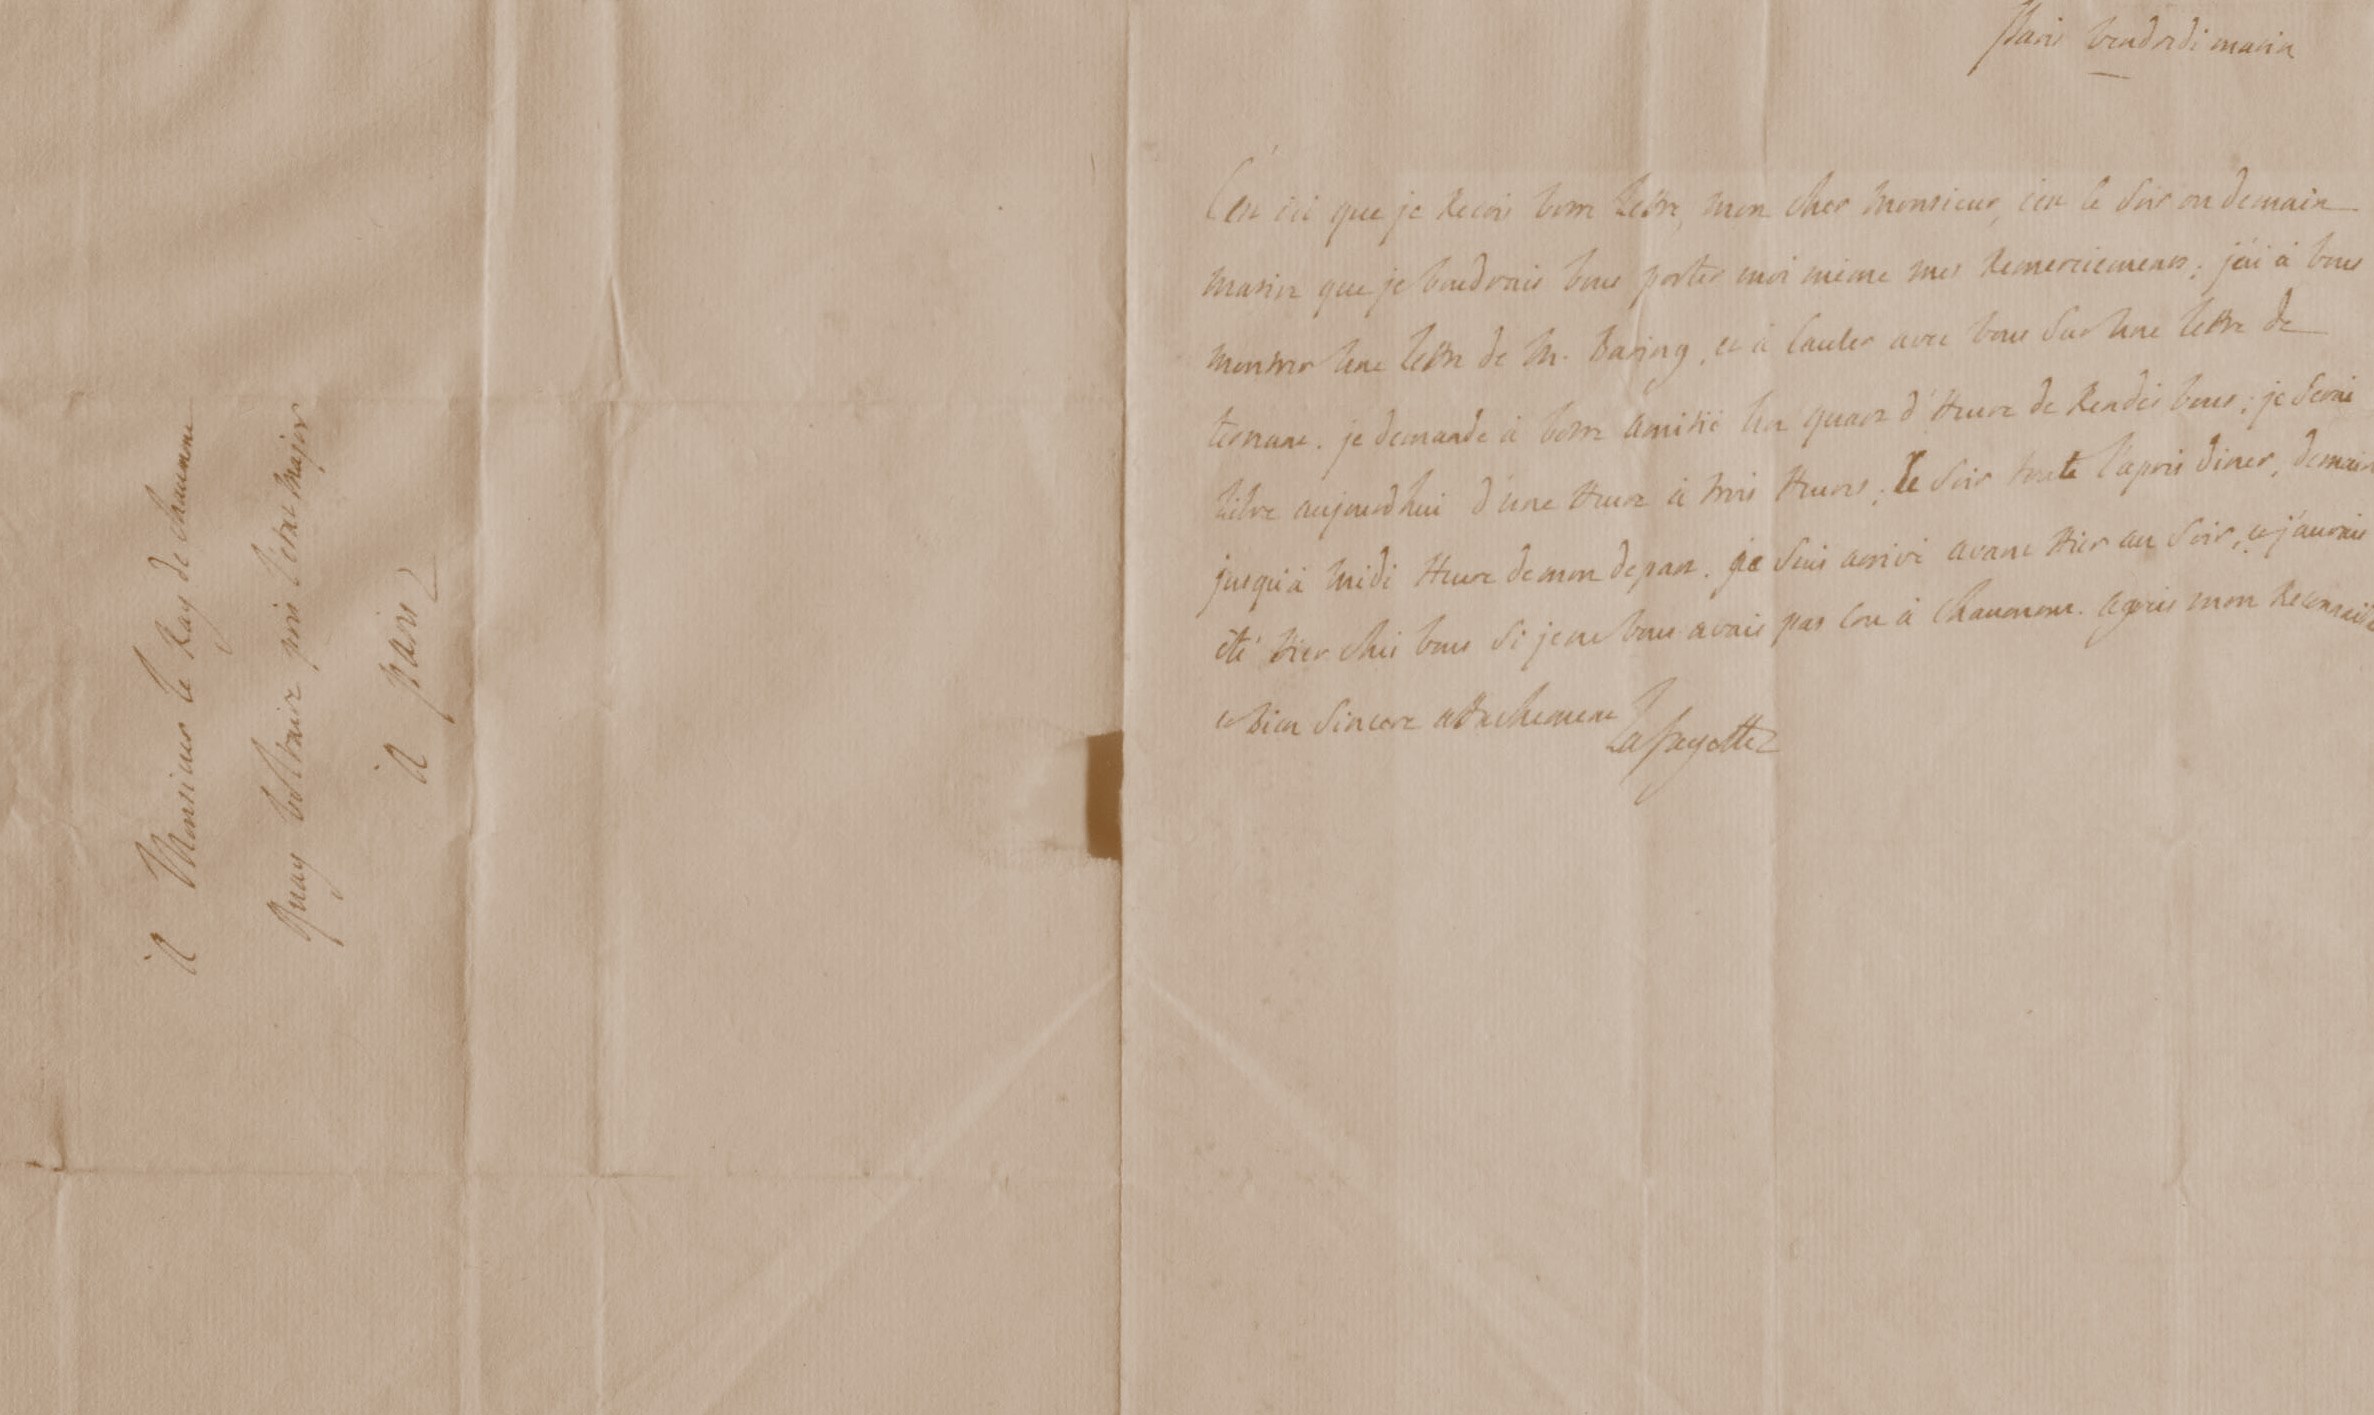 Paris vendredi matin
C'est ici que je Recois votre Lettre, mon cher Monsieur, c'est ce Soir ou demain
matin que je voudrais vous porter moi même mes Remerciements; j'ai à vous
montrer une lettre de M. Baring, et à causer avec vous Sur une lettre de
ternaux. je demande à votre amitié un quart d'Heure de Rendés vous; je Serai
libre aujourdhui d'une Heure à trois Heures; le Soir toute l'apres diner, demain
jusqu'à midi Heure de mon depart. je Suis arrivé avant Hier au Soir, et j'aurais
été Hier chés vous Si je ne vous avais pas cru à Chaumont. agrées mon
et bien Sincere attachement
Lafayette
A Monsieur le Ray de Chaumont
quay voltaire près l'état Major
A Paris